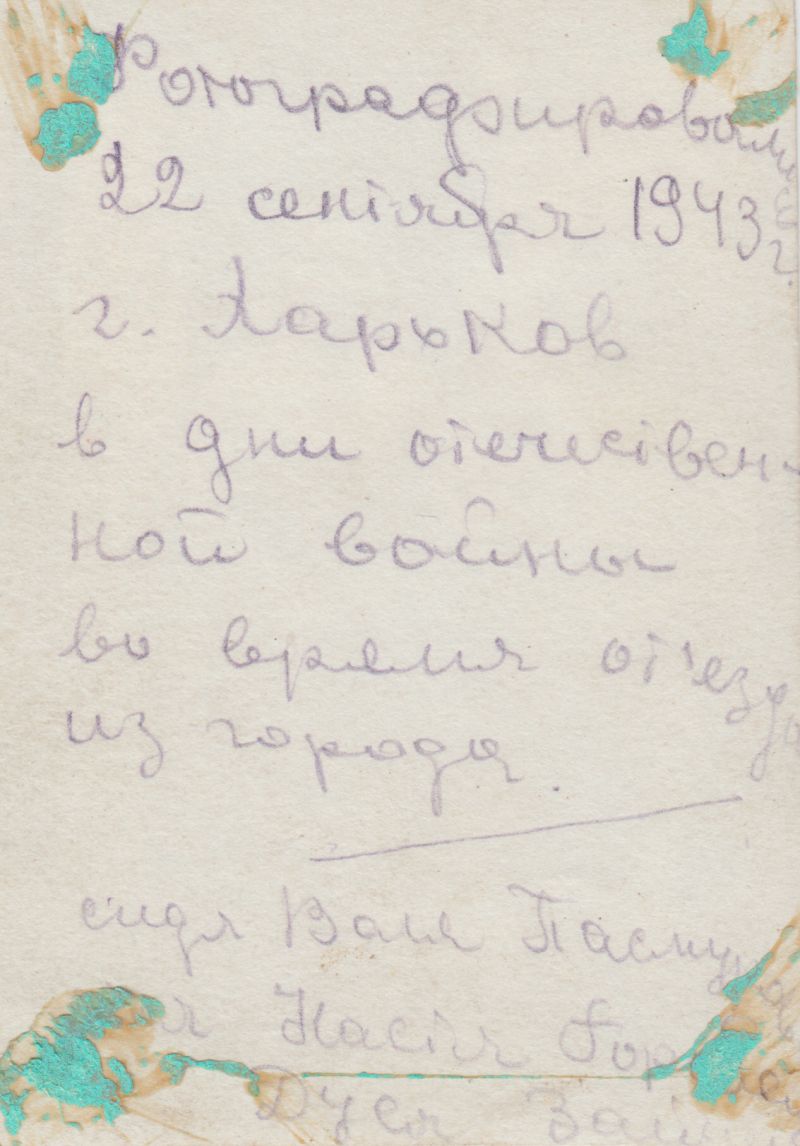 Фотографировались
22 сентября 1943 г.
г. Харьков
в дни отечествен-
ной войны
во время от'езда
из города.
сидя Валя
я Настя
Дуся